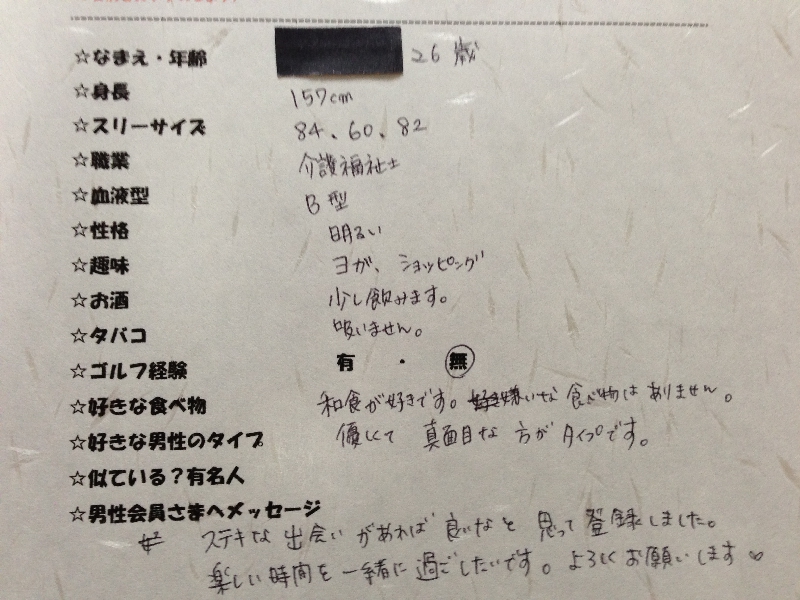 ☆なまえ・年齢 26歳
☆身長 157cm
☆スリーサイズ 84、60、82
☆職業 介護福祉士
☆血液型 B型
☆性格 明るい
☆趣味 ヨガ、ショッピング
☆お酒 少し飲みます。
☆タバコ 吸いません。
☆ゴルフ経験 有・無
☆好きな食べ物 和食が好きです。嫌いな食べ物はありません。
☆好きな男性のタイプ 優しくて真面目な方がタイプです。
☆似ている?有名人
☆男性会員さまへメッセージ
ステキな出会いがあれば良いなと思って登録しました。
楽しい時間を一緒に過ごしたいです。よろしくお願いします♡